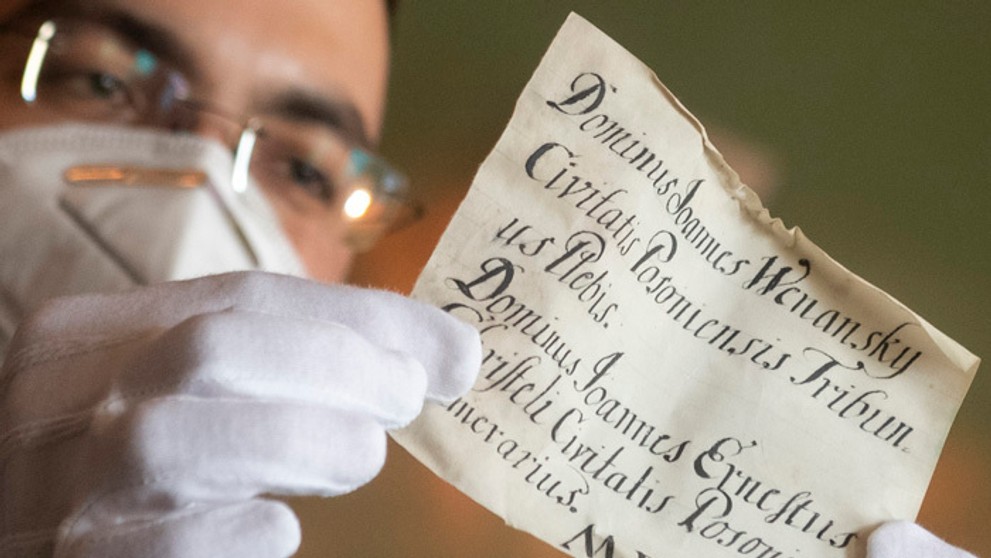 Dominus Joannes Wenansky
Civitatis Posoniensis Tribun
us Plebis.
Dominus Joannes Ernestus
Christeli Civitatis
merarius.